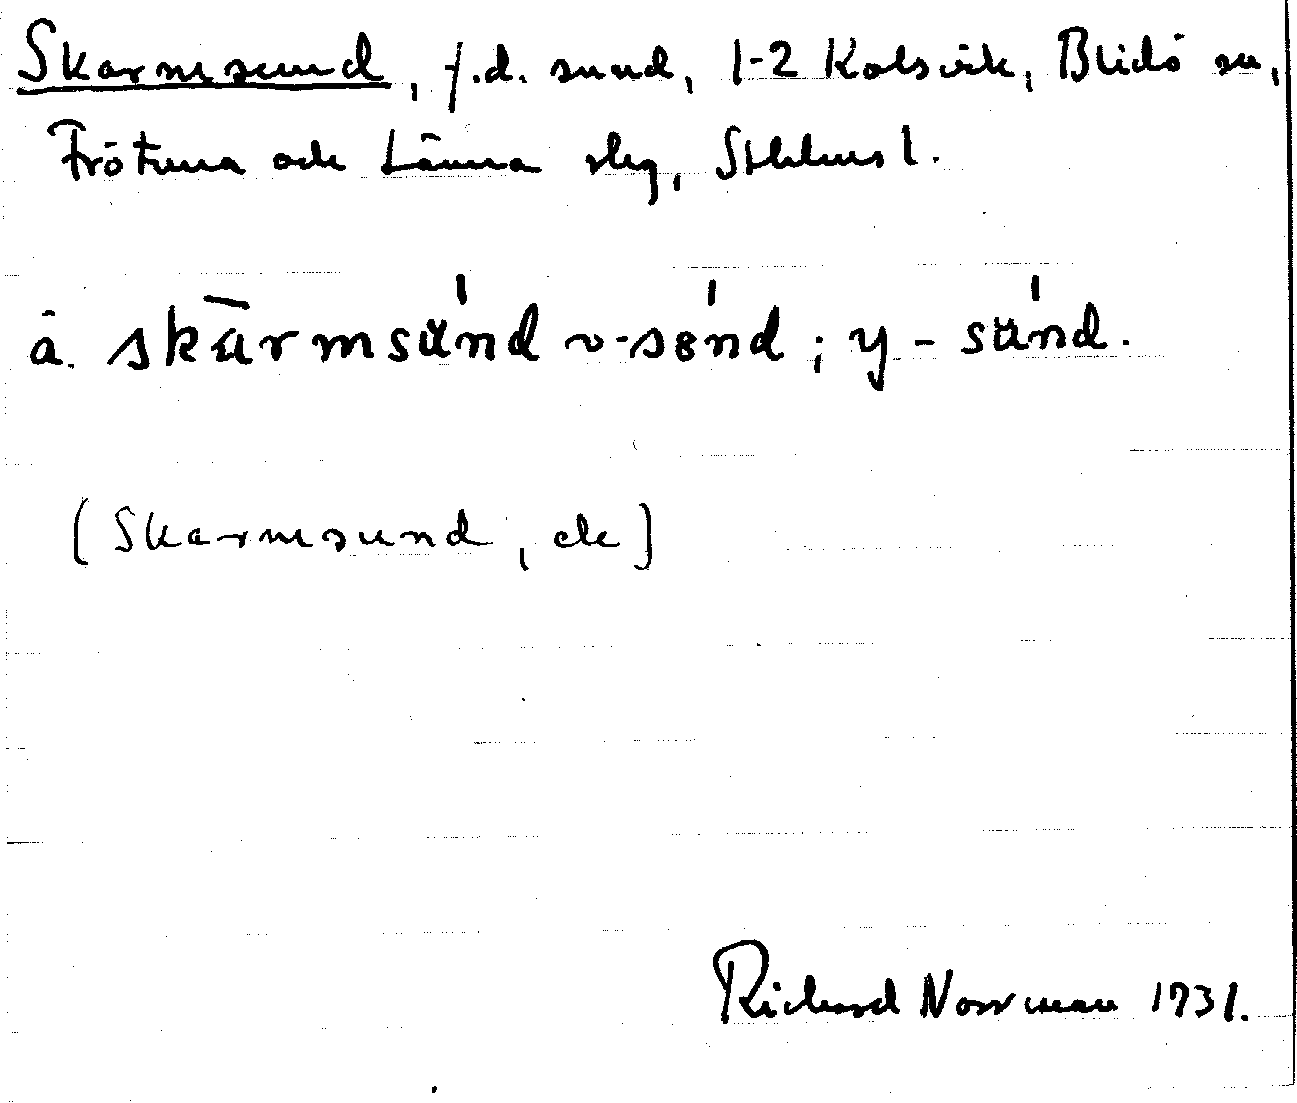 Skarmsund, f.d. sund, 1-2 Kolsvik, Blidö sn,
Frötuna och Länna slg, Sthlms l.
å. skārmsu̍nd ~ -sɵ̍nd ; y - su̍nd.
(Skarmsund, ek)
Richard Norrman 1931.